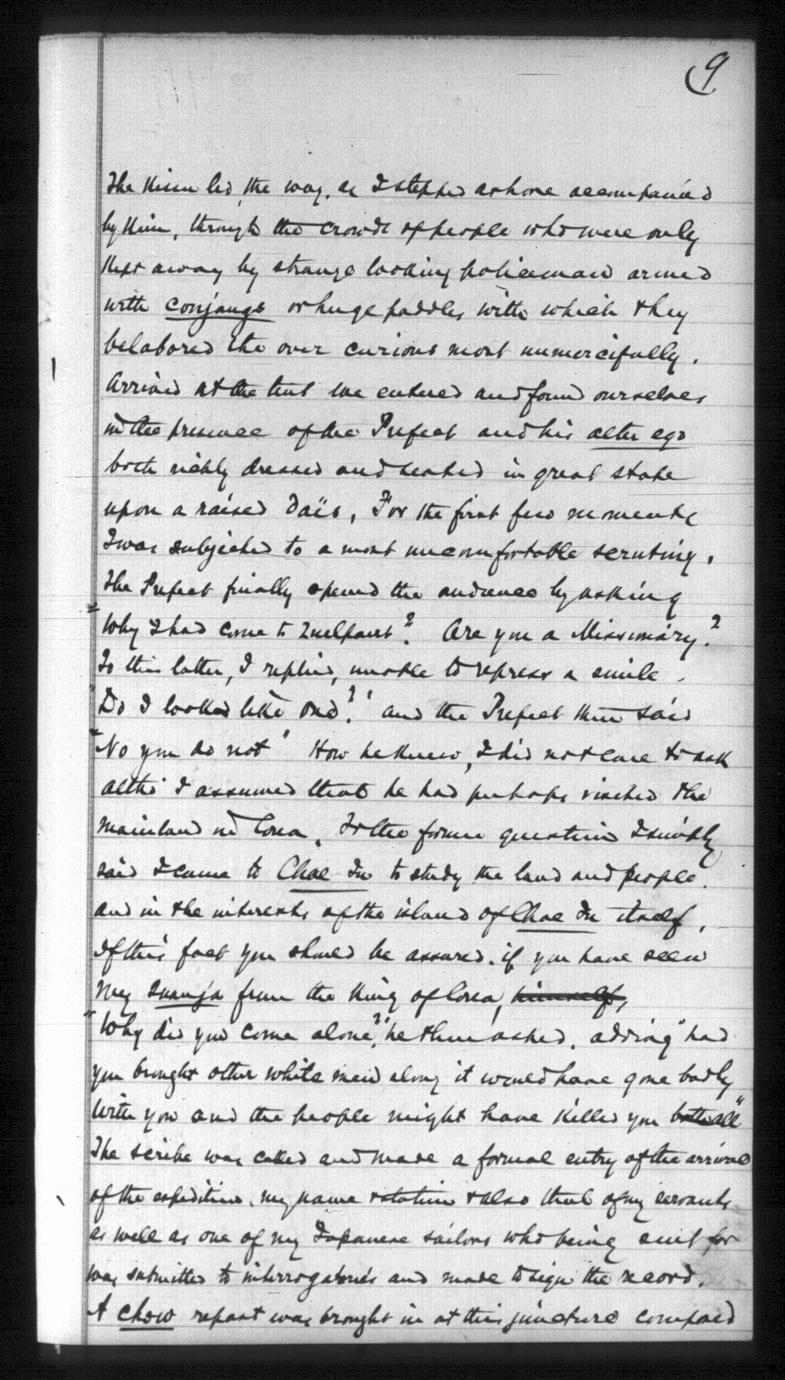 9
The Kisen led, the way, as I stepped ashore accompanied
by Kim, through the crowds of people who were only
kept away by strange looking policeman armed
with conjangs or huge paddles with which they
belabored the over curious most unmercifully.
Arrived at the tent we entered and found ourselves
in the presence of the Prefect and his alter ego
both richly dressed and seated in great state
upon a raised daïs, For the first few moments
I was subjected to a most uncomfortable scrutiny.
The Prefect finally opened the audience by asking
"Why I had come to Quelpaert? Are you a Missionary?"
To this latter, I replied, unable to repress a smile.
"Do I looked like one?" and the Prefect then said
"No you do not" How he knew, I did not care to ask
altho' I assumed that he had perhaps visited the
mainland in Corea. To the former question I simply
said I came to Chae Ju to study the land and people.
and in the interests of the island of Chae Ju itself.
Of this fact you should be assured. if you have seen
my from the King of Corea, himself,
"Why did you come alone?", he then asked. adding "had
you brought other white men along it would have gone badly
with you and the people might have killed you all"
The scribe was called and made a formal entry of the arrival
of the expedition. my name station & also that of my servants
as well as one of my Japanese sailors who being sent for
was submitted to interrogatories and made to sign the record.
A chow repast was brought in at this juncture composed